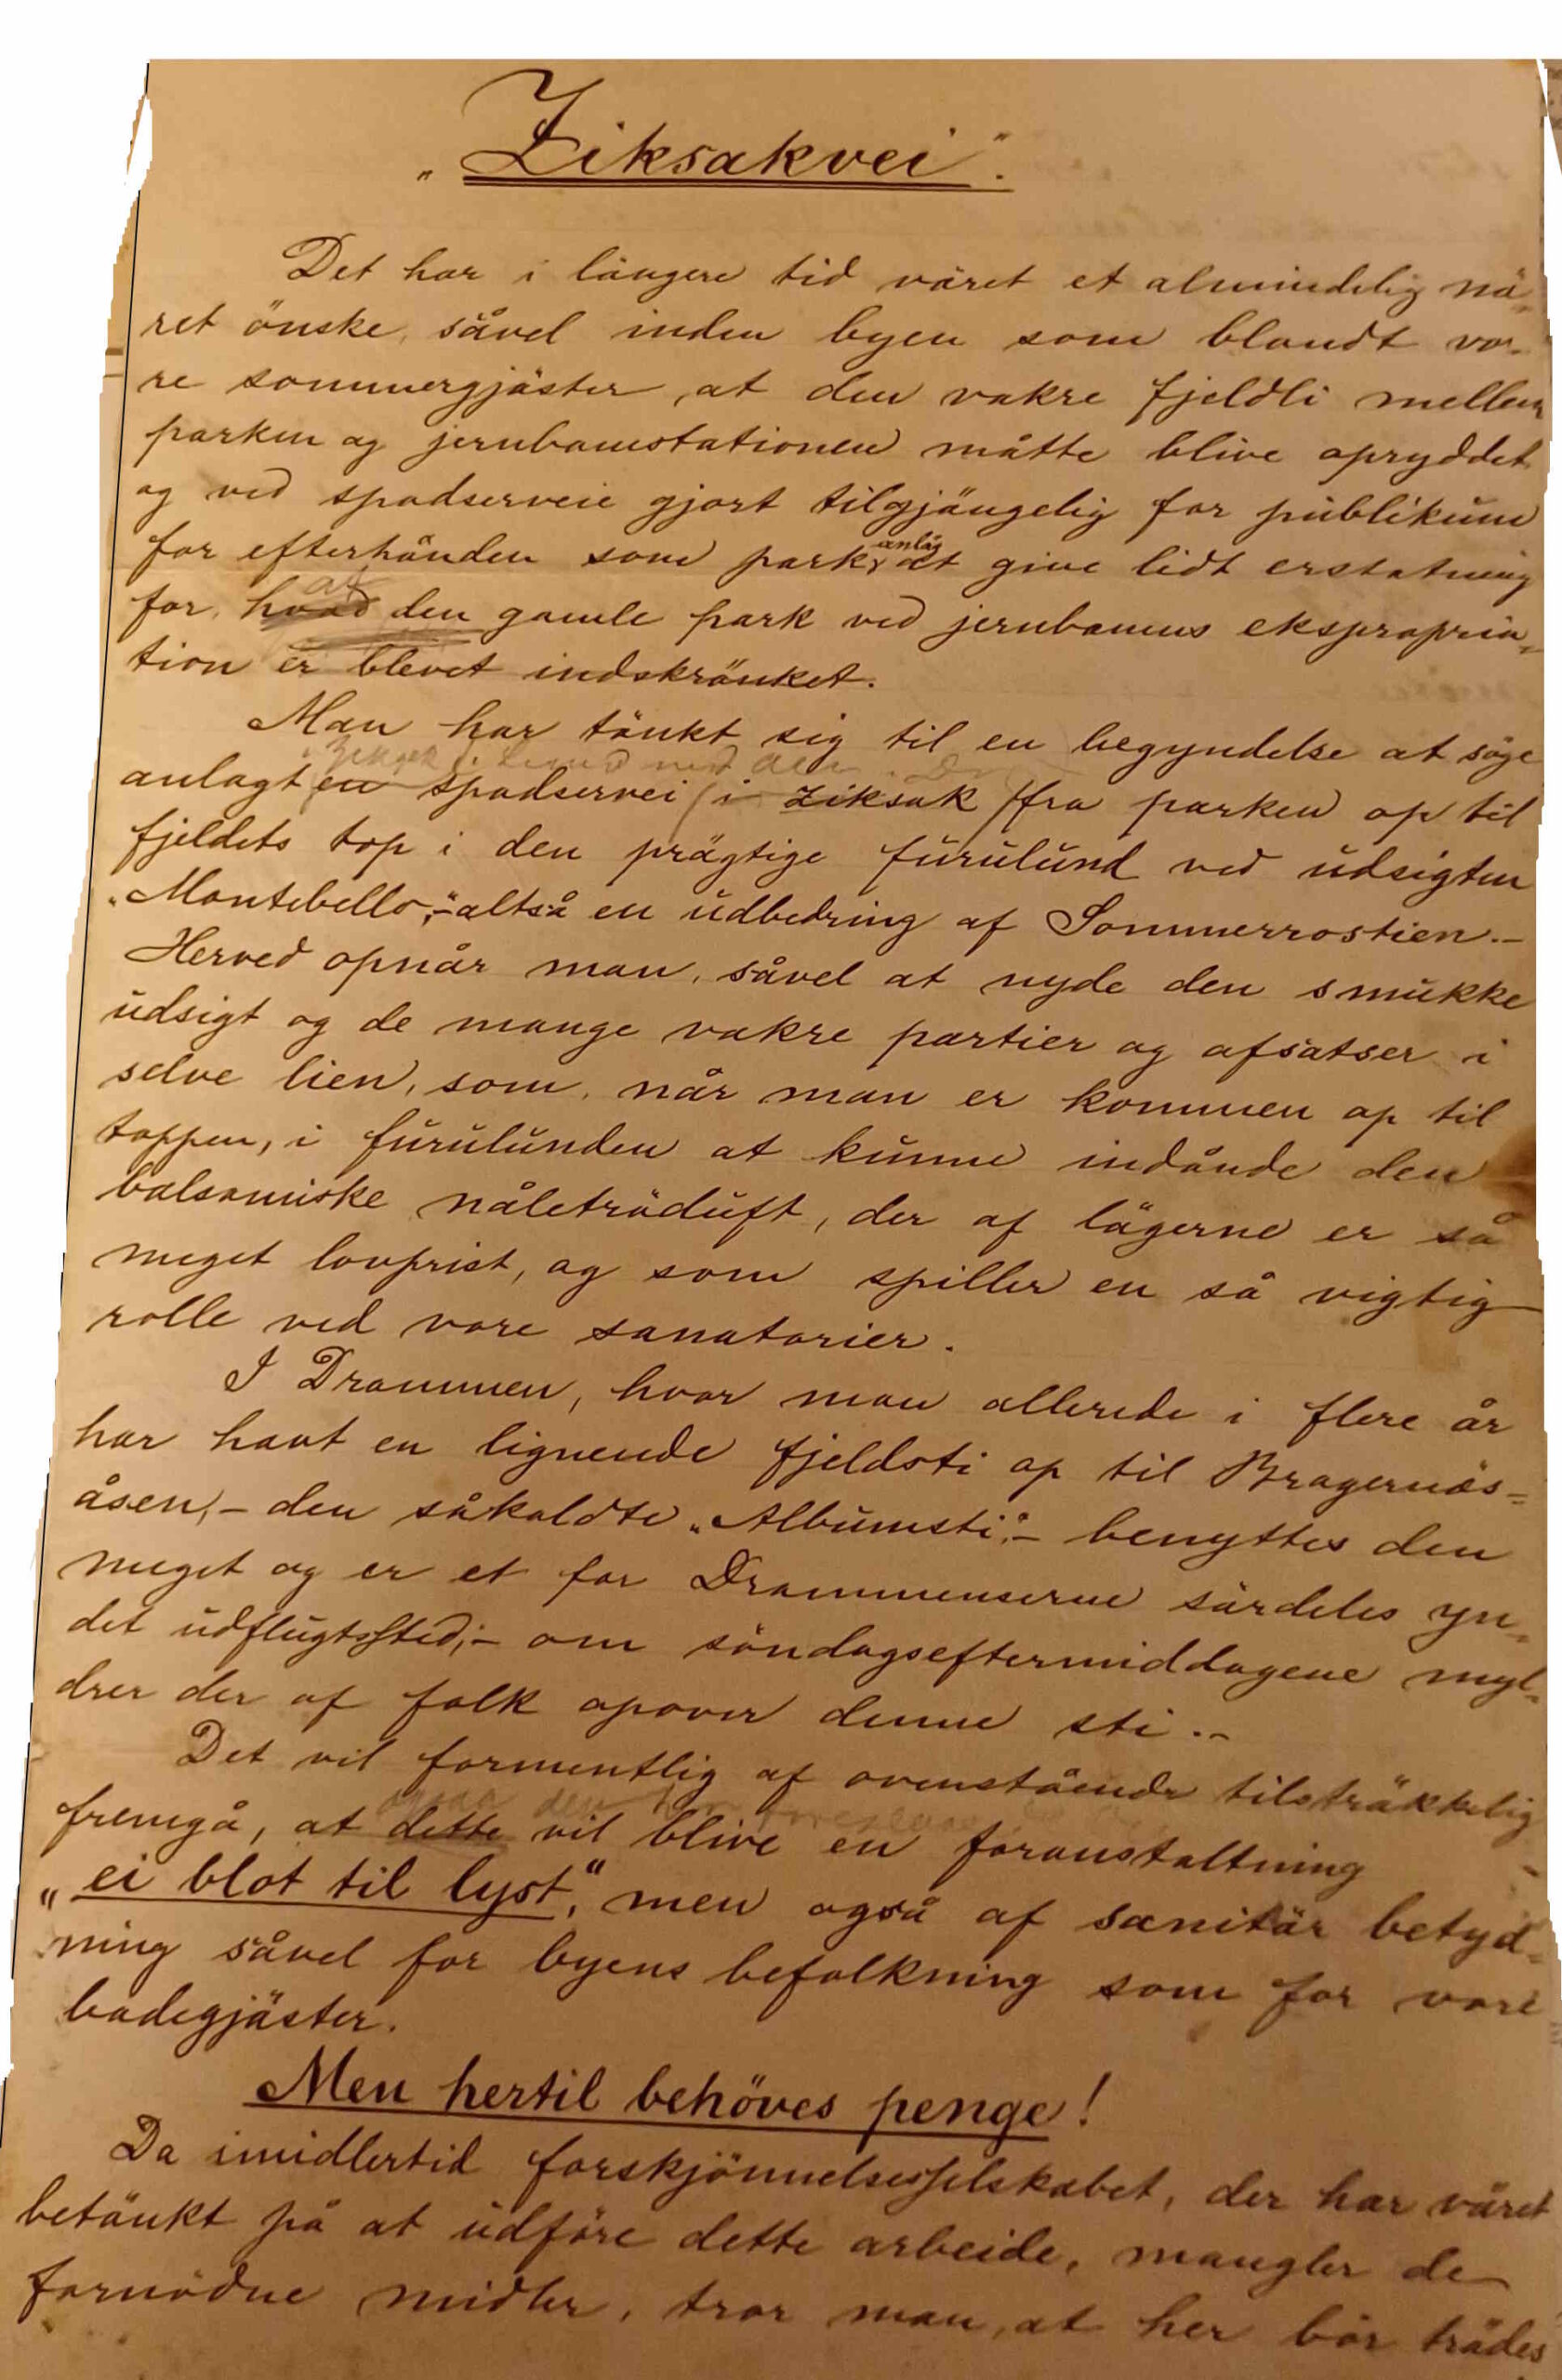 „Ziksakvei".
Det har i längere tid väret et almindelig nä-
ret önske, såvel inden byen som blandt vo-
re sommergjäster, at den vakre fjeldli mellem
parken og jernbanestationen måtte blive opryddet
og ved spadserveie gjort tilgjängelig for publikum
anläg
for efterhånden som park at give lidt erstatning
at
for, hvad den gamle park ved jernbanens ekspropria-
tion er blevet indskränket.
Man har tänkt sig til en begyndelse at söge
anlagt en spadservei (i ziksak) fra parken op til
fjeldets top i den prägtige furulund ved udsigten
„Montebello",- altså en udbedring af Sommerrostien.-
Herved opnår man, såvel at nyde den smukke
udsigt og de mange vakre partier og afsatser i
selve lien, som, når man er kommen op til
toppen, i furulunden at kunne indånde den
balsamiske nåleträduft, der af lägerne er så
meget lovprist, og som spiller en så vigtig
rolle ved vore sanatorier.
I Drammen, hvor man allerede i flere år
har havt en lignende fjeldsti op til Bragernäs-
åsen,- den såkaldte „Albumsti",- benyttes den
meget og er et for Drammenserne särdeles yn-
det udflugtssted;- om söndagseftermiddagene myl-
drer der af folk opover denne sti.-
Det vil formentlig af ovenstående tilsträkkelig
fremgå, at dette vil blive en foranstaltning
„ei blot til lyst," men også af sanitär betyd-
ning såvel for byens befolkning som for vore
badegjäster.
Men hertil behöves penge!
Da imidlertid forskjönnelsesselskabet, der har väret
betänkt på at udföre dette arbeide, mangler de
fornödne midler, tror man, at her bör trädes